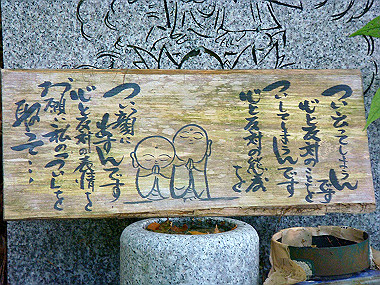 つい云ってしまうんです
心と反対のことを
ついしてしまうんです
心と反対の態度を
つい顔に
出すんです
心と反対の表情を
お願い私の「つい」を
取って…